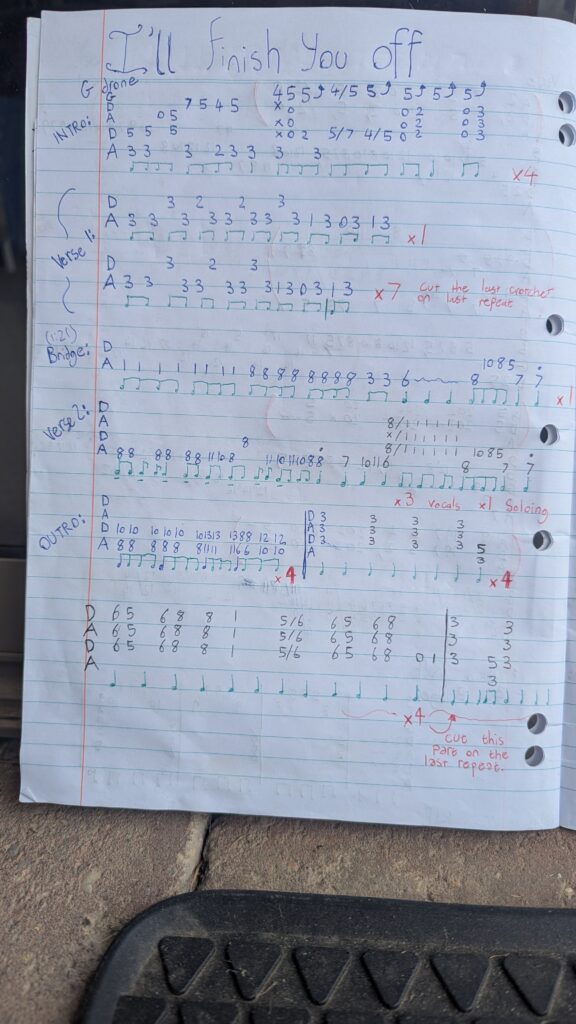 I'll Finish You off
G drone
G 4 5 5 4/5 5 5 5 5
D 7 5 4 5 x 0
A 0 5 x 0 0 2 0 3
INTRO: D 5 5 5 x 0 2 5/7 4/5 0 2 0 3
A 3 3 3 2 3 3 3 3
x4
D 3 2 2 3
Verse 1: A 3 3 3 3 3 3 3 3 3 1 3 0 3 1 3
x1
D 3 2 3
A 3 3 3 3 3 3 3 1 3 0 3 1 3 x7 Cut the last crotchet
on last repeat
(1:21)
Bridge: D 10 8 5
A 1 1 1 1 1 1 1 8 8 8 8 8 8 8 8 3 3 6 8 7 7
x1
Verse 2: D
A 8/ 1 1 1 1 1 1
D 8 x/ 1 1 1 1 1 1
A 8 8 8 8 8 8 11 10 8 11 10 11 10 8 8 7 10 11 6 8/ 1 1 1 1 1 1 8 10 8 5 7 7
x3 vocals x1 Soloing
OUTRO: D D 3 3 3 3
A A 3 3 3 3
D 10 10 10 10 10 10 13 13 13 8 8 12 12 D 3 3 3 3 5
A 8 8 8 8 8 8 11 11 11 6 6 10 10 A 3
x4 x4
D 6 5 6 8 8 1 5/6 6 5 6 8 3 3
A 6 5 6 8 8 1 5/6 6 5 6 8 3 3
D 6 5 6 8 8 1 5/6 6 5 6 8 0 1 3 5 3
A 3
x4
cut this
Part on the
last repeat.